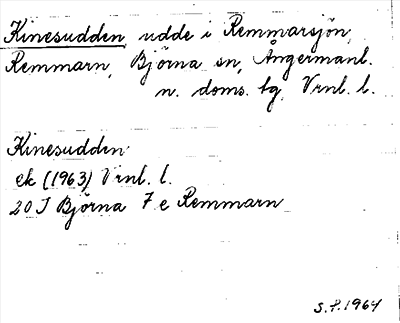 Kinesudden, udde i Remmarsjön,
Remmarn, Björna sn, Ångermanl.
n. doms. tg, Vrnl. l.
Kinesudden
ek (1963) Vrnl. l.
20 J Björna 7 e Remmarn
S.F. 1964